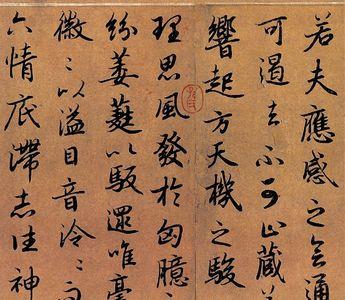 若夫應感之會通
可遏去不可止藏
響起方天機之駿
理思風發於匈臆
紛萎蕤以馺遝唯毫
徽〻以溢目音泠〻而
六情底滯志往神